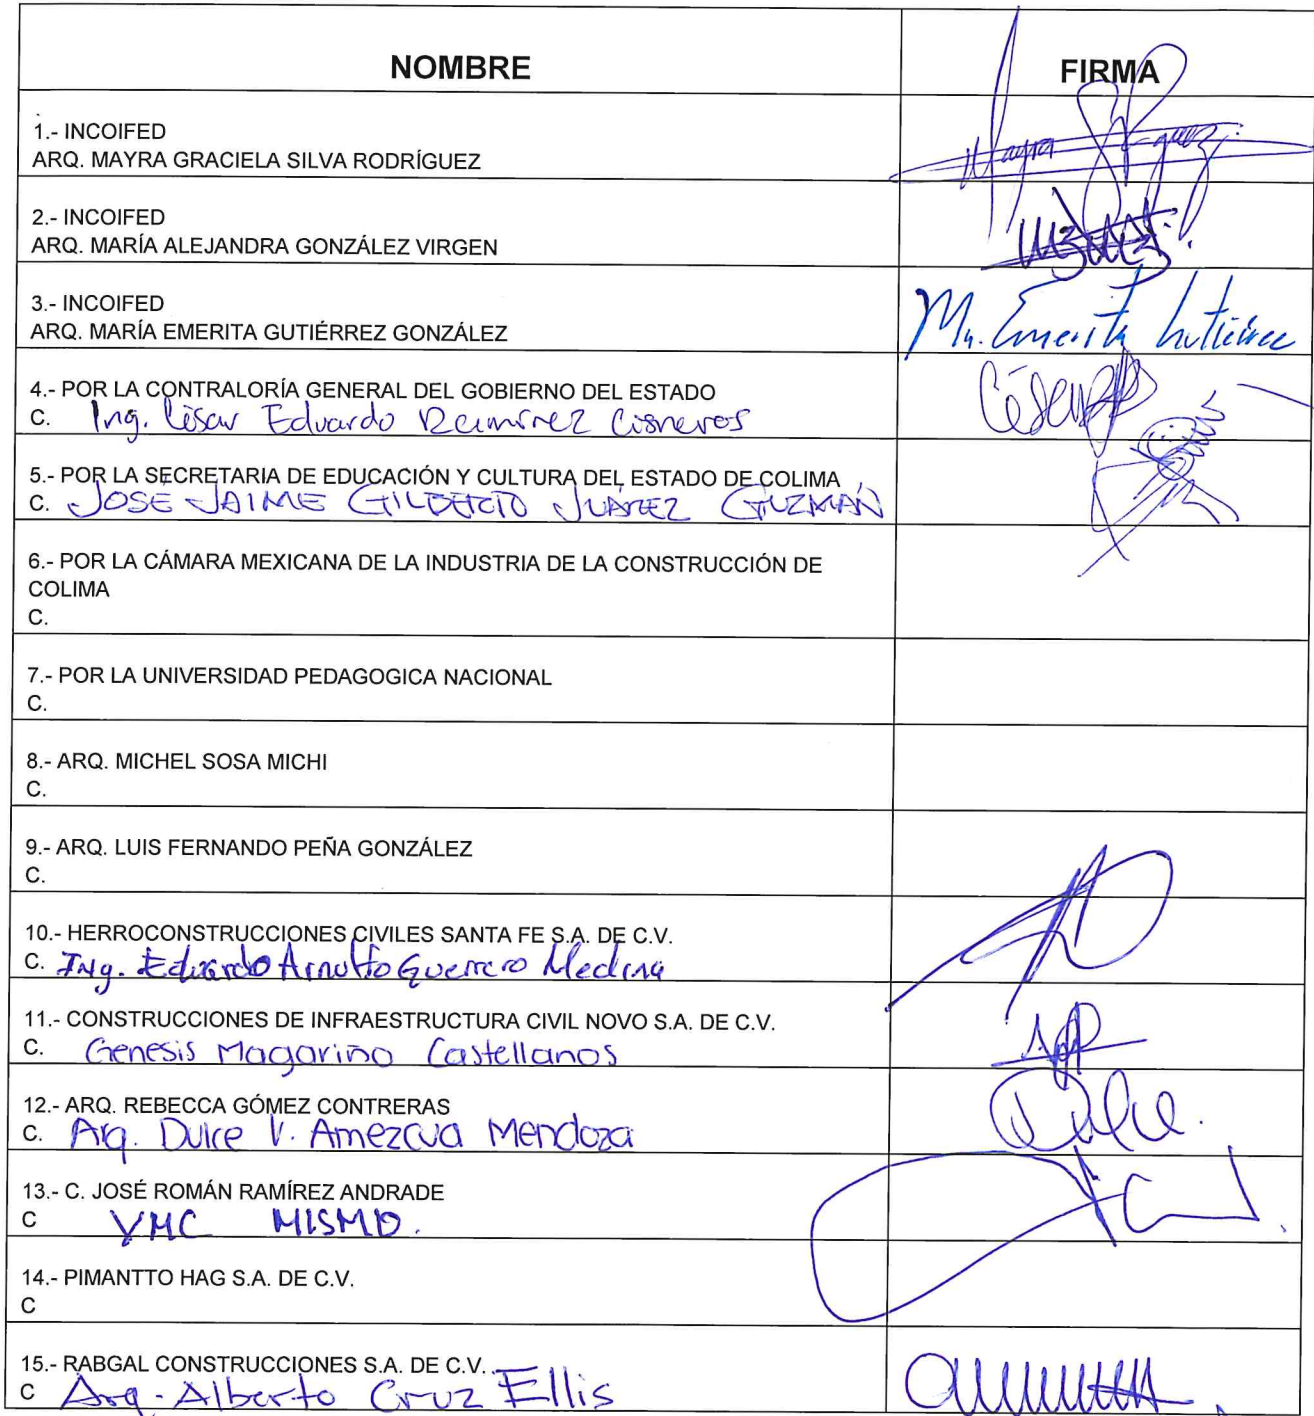 NOMBRE
FIRMA
1.- INCOIFED
ARQ. MAYRA GRACIELA SILVA RODRÍGUEZ
Mayra
2.- INCOIFED
ARQ. MARÍA ALEJANDRA GONZÁLEZ VIRGEN
3.- INCOIFED
ARQ. MARÍA EMERITA GUTIÉRREZ GONZÁLEZ
Ma. Emerita Gutiérrez
4.- POR LA CONTRALORÍA GENERAL DEL GOBIERNO DEL ESTADO
C. Ing. César Eduardo Ramírez Cisneros
5.- POR LA SECRETARIA DE EDUCACIÓN Y CULTURA DEL ESTADO DE COLIMA
C. JOSE JAIME GILBERTO JUÁREZ GUZMÁN
6.- POR LA CÁMARA MEXICANA DE LA INDUSTRIA DE LA CONSTRUCCIÓN DE
COLIMA
C.
7.- POR LA UNIVERSIDAD PEDAGOGICA NACIONAL
C.
8.- ARQ. MICHEL SOSA MICHI
C.
9.- ARQ. LUIS FERNANDO PEÑA GONZÁLEZ
C.
10.- HERROCONSTRUCCIONES CIVILES SANTA FE S.A. DE C.V.
C. Ing. Eduardo Arnulfo Guerrero Medina
11.- CONSTRUCCIONES DE INFRAESTRUCTURA CIVIL NOVO S.A. DE C.V.
C. Genesis Magariño Castellanos
12.- ARQ. REBECCA GÓMEZ CONTRERAS
C. Arq. Dulce V. Amezcua Mendoza
Dulce.
13.- C. JOSÉ ROMÁN RAMÍREZ ANDRADE
C MISMO.
14.- PIMANTTO HAG S.A. DE C.V.
C
15.- RABGAL CONSTRUCCIONES S.A. DE C.V.
C Arq. Alberto Cruz Ellis